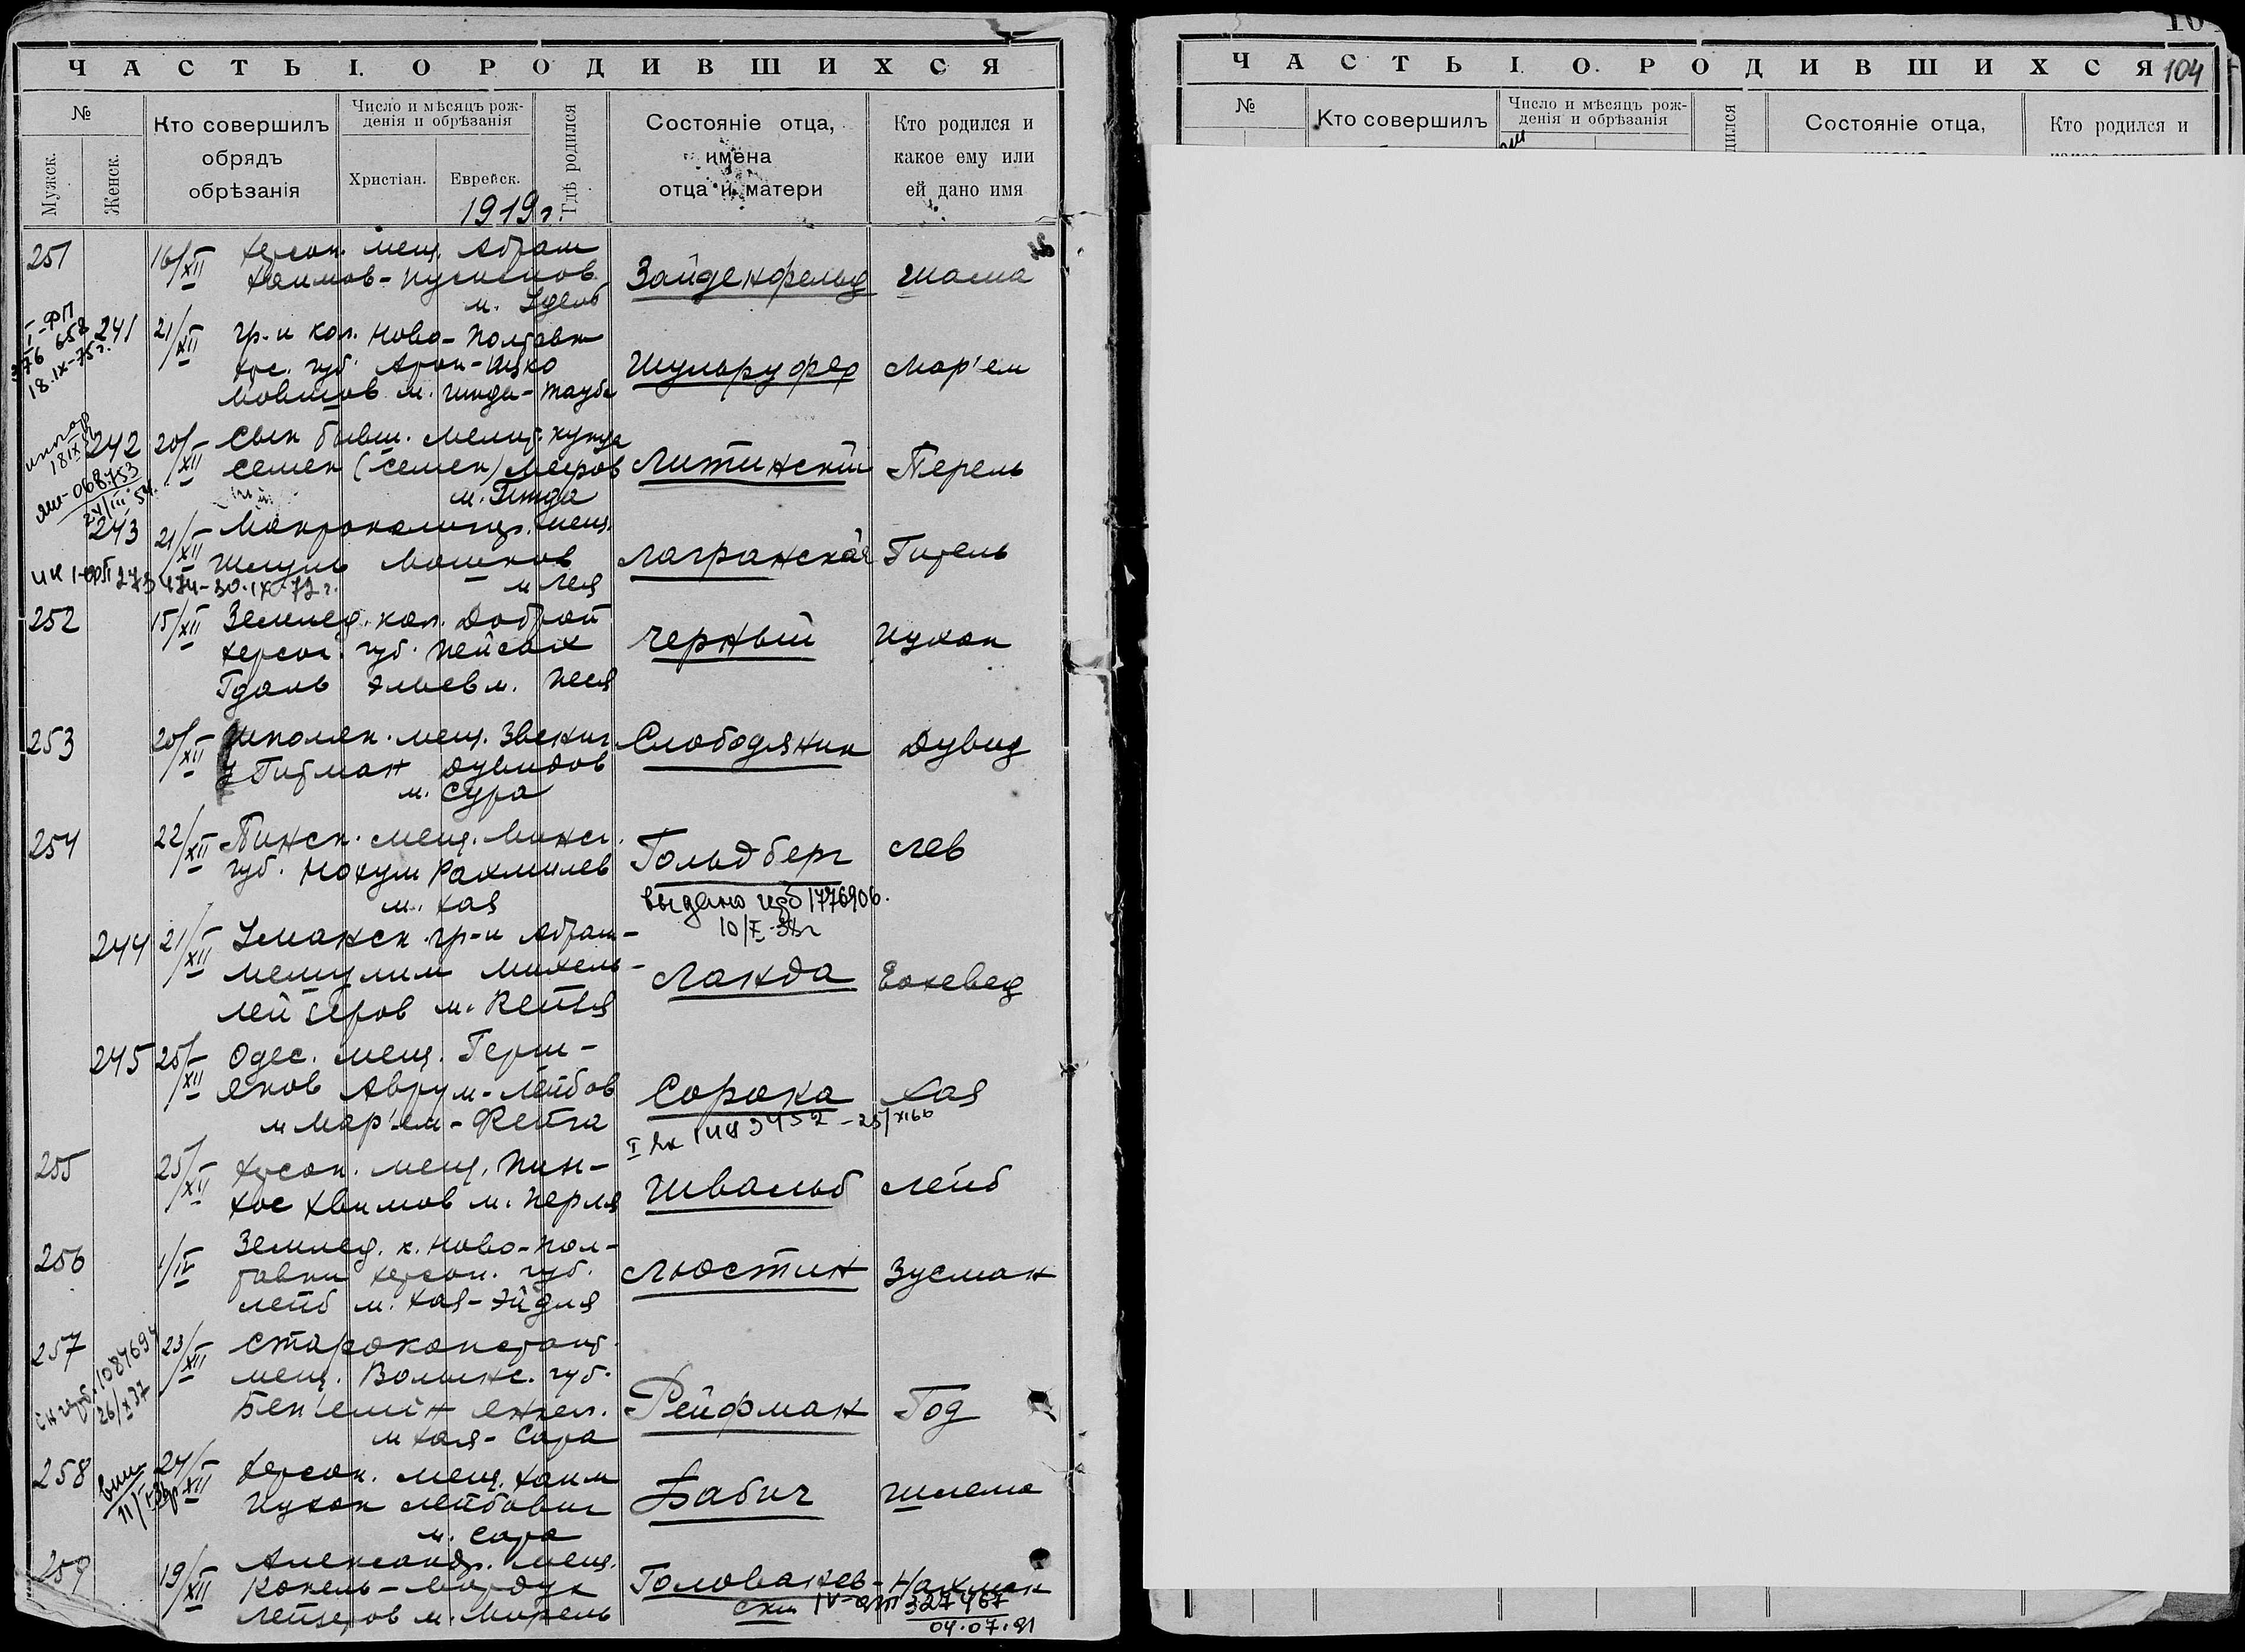 ЧАСТЬ I. О РОДИВШИХСЯ
№
Мужск.
Женск.
Кто совершилъ
обрядъ
обрѣзанія
Число и мѣсяцъ рож-
денія и обрѣзанія
Христіан.
Еврейск.
1919 г.
Гдѣ родился
Состояніе отца,
имена
отца и матери
Кто родился и
какое ему или
ей дано имя
251 16/XII Херсон. мещ. Абрам
Хаимов-
м. Удель
Зайденфельд
241 21/XII гр-н кол. Ново-Полтавк
Хрс. губ. Арон-Ицко
Мовшов м. Гинда-Тауба
Шульруфер Мар'ем
I-ФП
376 658
18.IX-75г.
242 20/XII Сын бывш. Мелит. купца
Семен (Семен) Мееров
м. Гинда
Литинскій Перель
068753
24/III 54.
243 21/XII мещ.
Шмуль Мошков
м Лея
Лагранская Гитель
273 474-30.IX-72г.
252 15/XII Земмед. кол. Доброй
Херсон. губ. Пейсах
Гдаль Эльев м. Песя
Черный Ицхок
253 20/XII Шполян. мещ. Звениг.
у Гитман Дувидов
м. Сура
Слободяник Дувид
254 22/XII Пинск. мещ. Минск.
губ. Нохум Рахмилев
м. Хая
Гольдберг Лев
выдано 1776906.
244 21/XII Уманск. гр-н Абрам-
Мешулим Михель-
Лейзеров м. Рейзя
Ланда Еохевед
245 25/XII Одес. мещ. Герш-
Янов Аврум-Лейбов
м Мар'ем-Фейга
Сорока Хая
3452 - 25/XI 66
255 25/XII Херсон. мещ. Пин-
хос Хаимов м. Перля
Швальб Лейб
256 1/IV Земмед. к. Ново-Пол-
тавки Херсон. губ.
Лейб м. Хая-Эйдля
Люстин Зусман
257 23/XII Староконстант.
мещ. Волынс. губ.
Бен'емін Янкел.
м Хая-Сара
Рейфман Год
1087694
26/X 37
258 24/XII Херсон. мещ. Хаим
Ицхок Лейбович
м. Сара
Бабич Шлема
259 19/XII Александр. мещ.
Копель-Мордух
Лейзеров м. Мирель
Головачев- Нахман
327467
04.07.91
ЧАСТЬ I. О. РОДИВШИХСЯ 104
№
Кто совершилъ
Число и мѣсяцъ рож-
денія и обрѣзанія
Состояніе отца,
Кто родился и